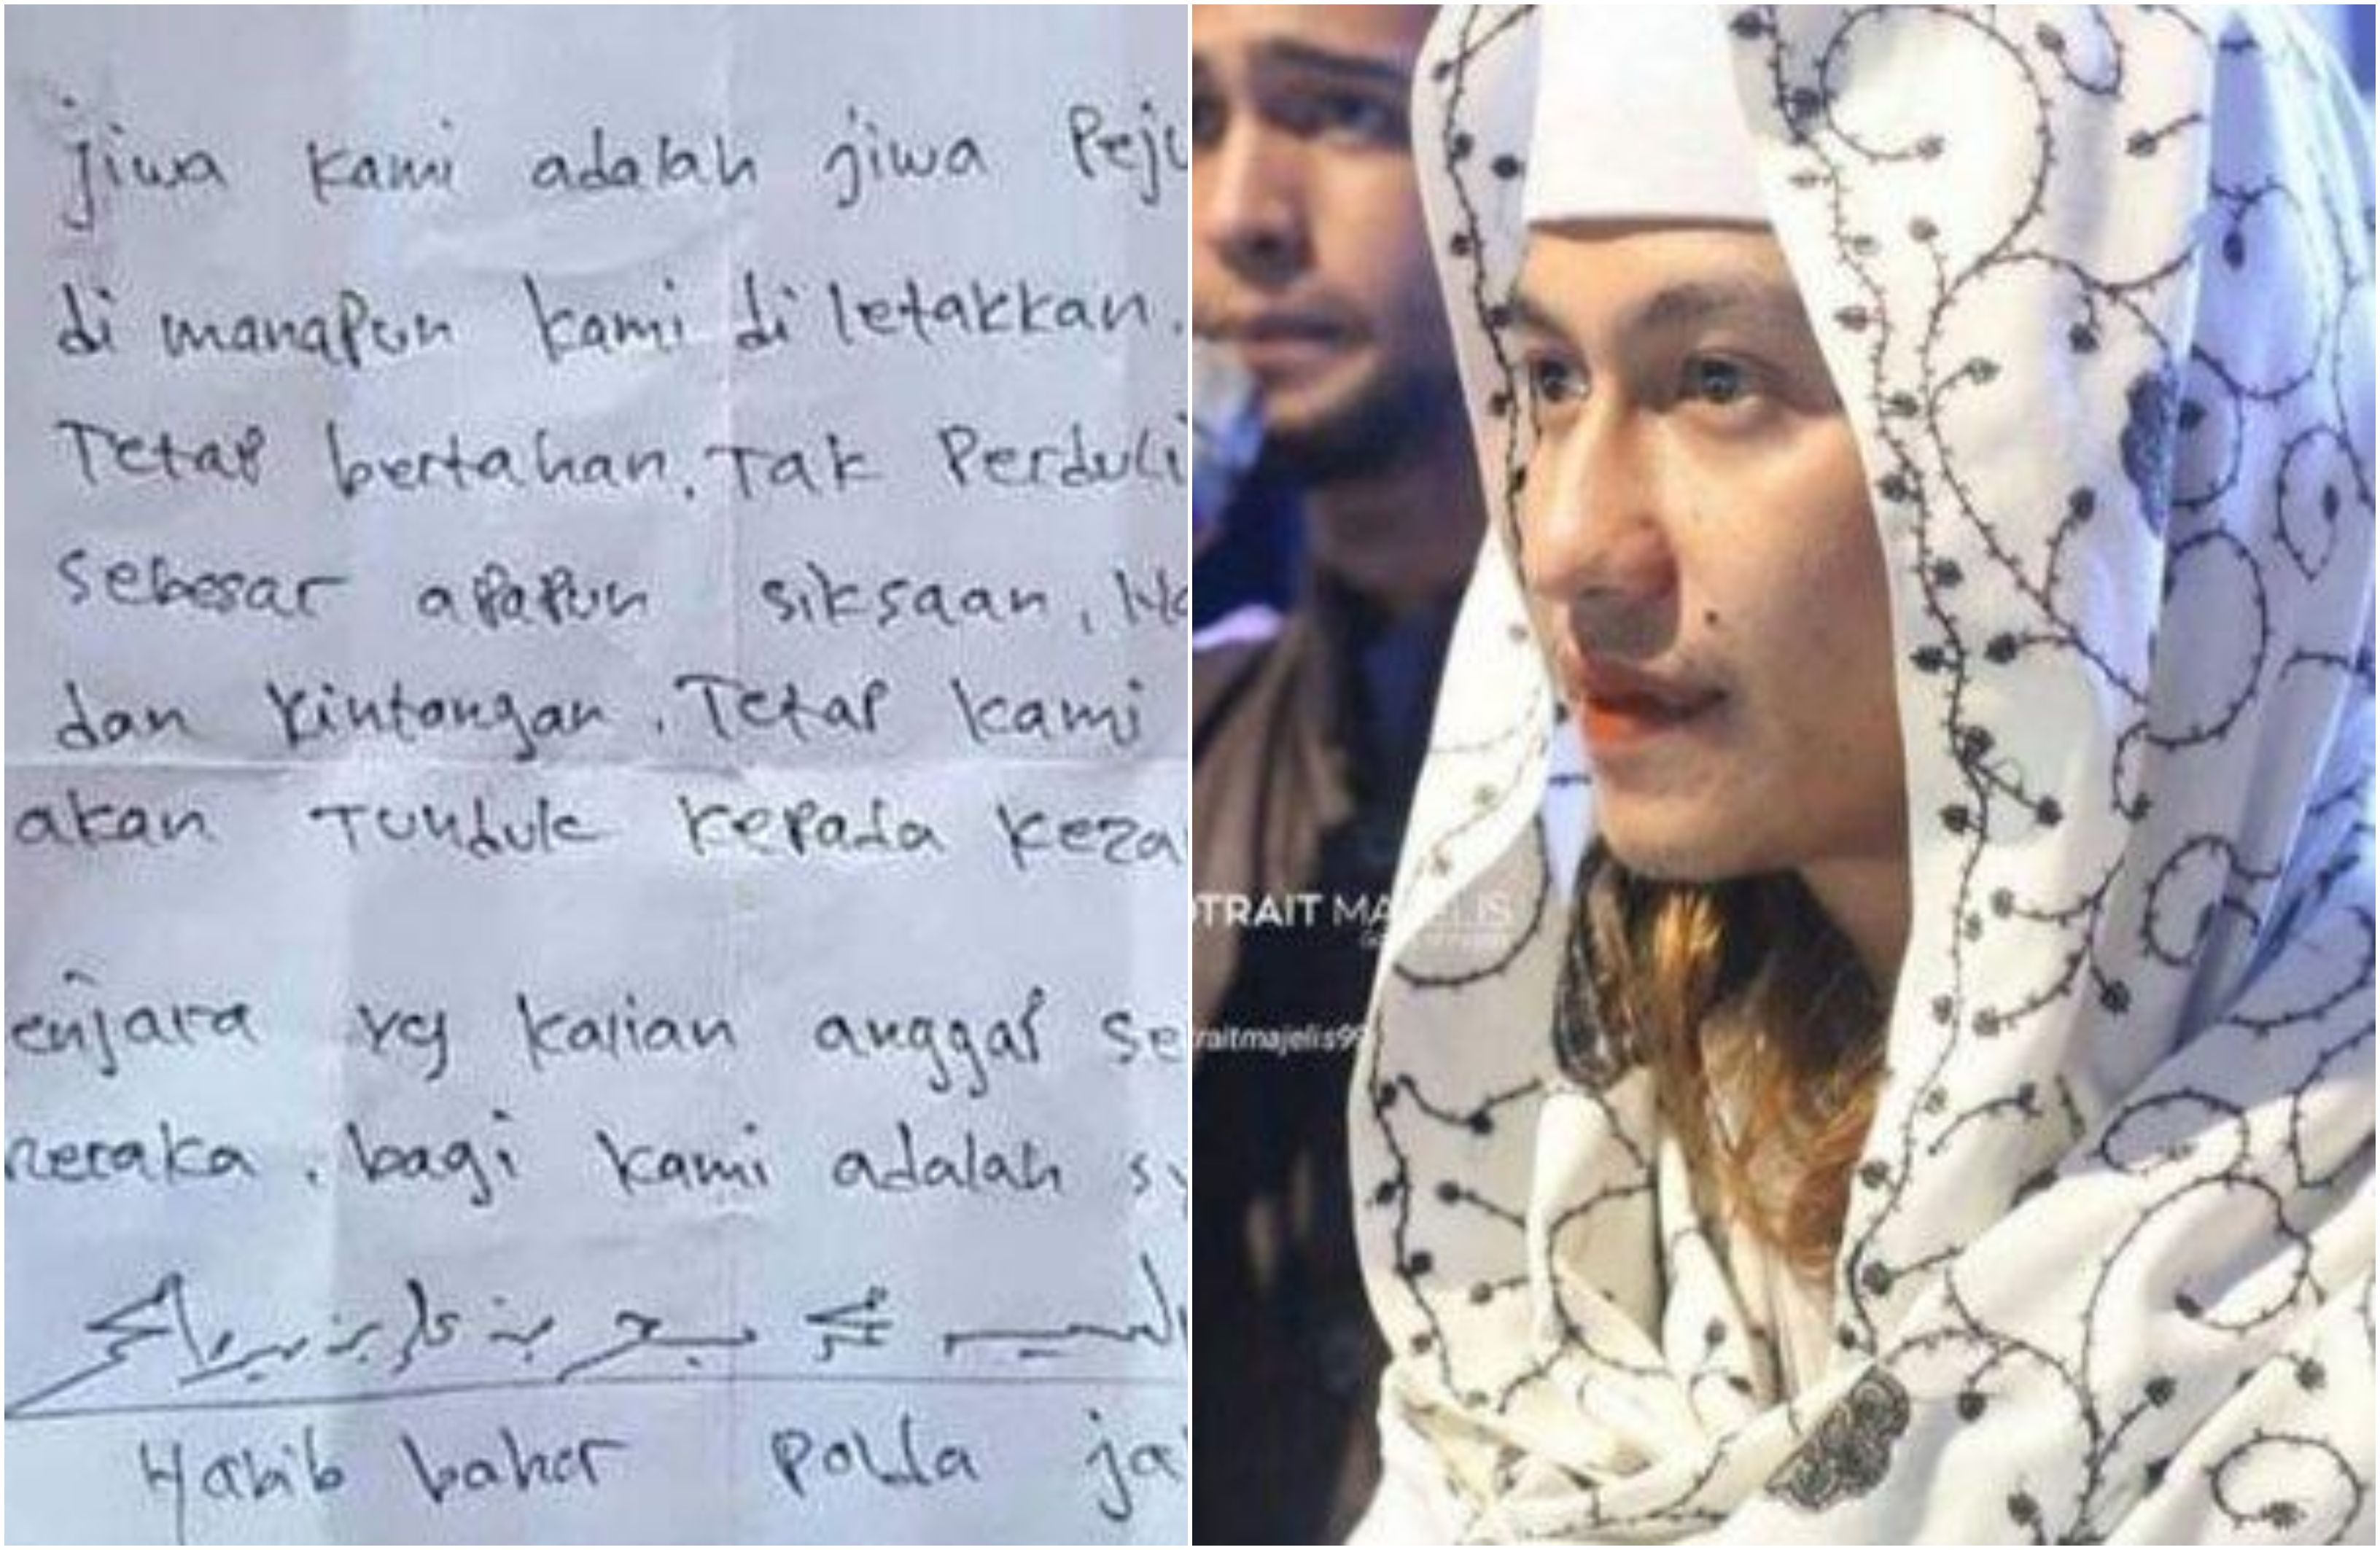 jiwa kami adalah jiwa Peju
di manapun kami di letakkan.
Tetap bertahan. Tak Perduli
sebesar apapun siksaan, Ha
dan Rintangan. Tetap kami
akan Tunduk kepada keza
enjara yg kalian anggap se
neraka. bagi kami adalah su
Habib baher polda ja
TRAIT MAJELIS
raitmajelis99